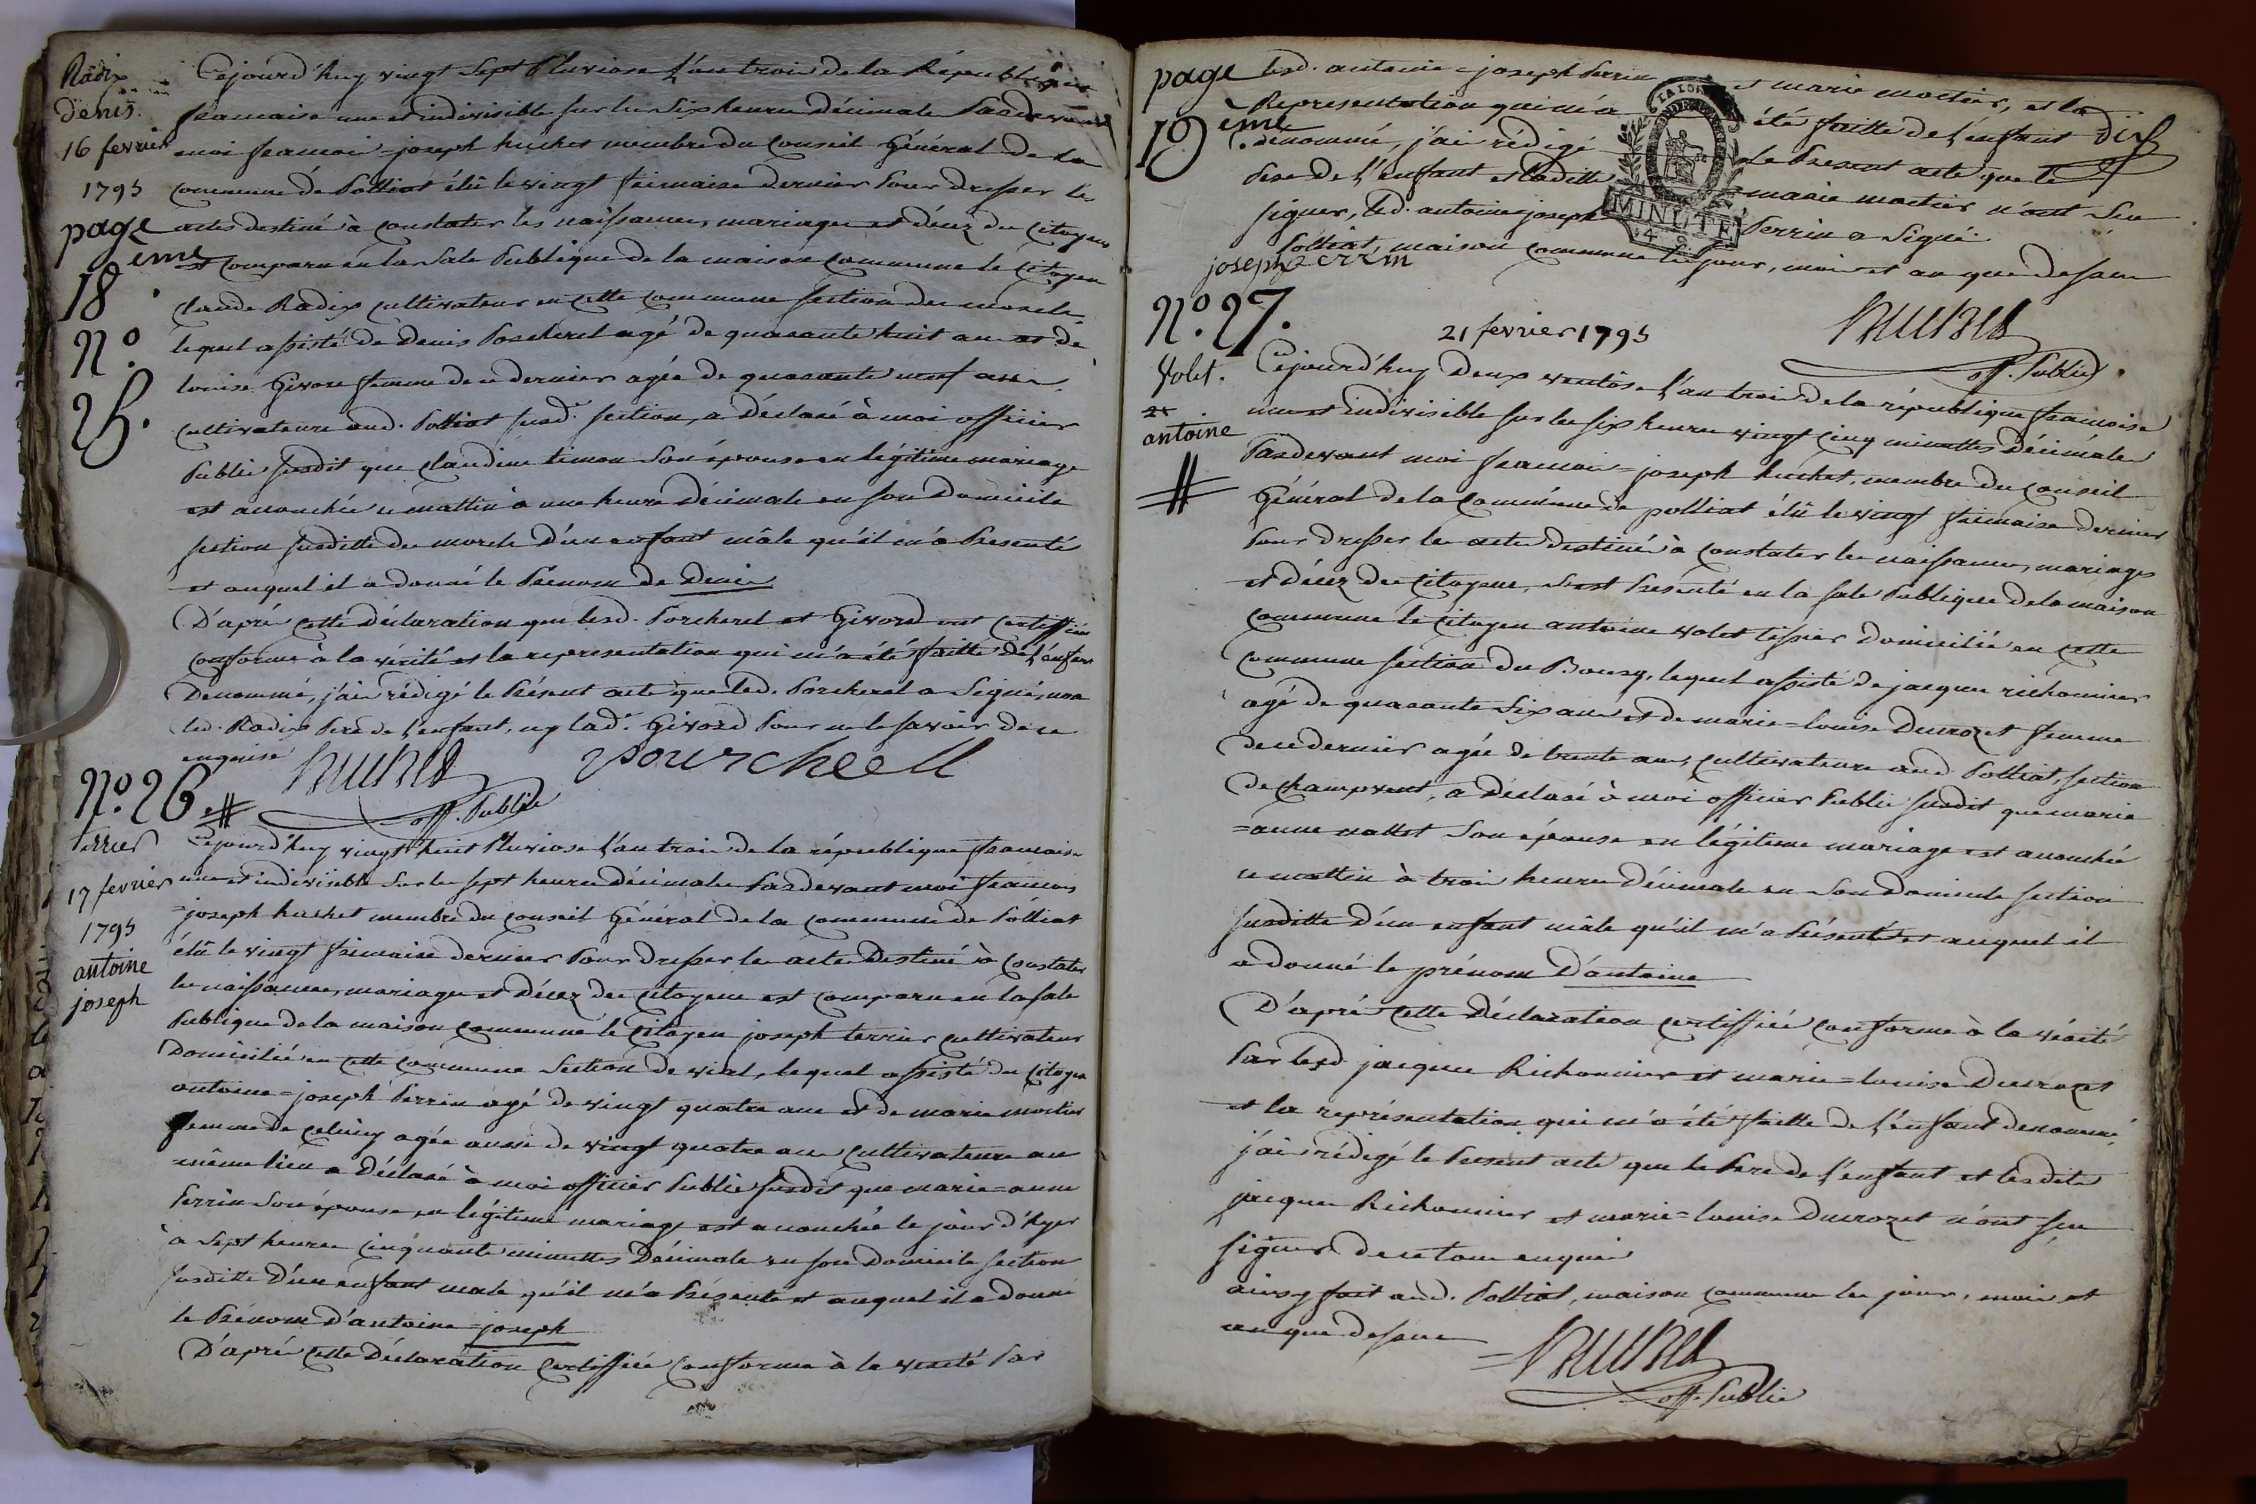 Radix
denis.
16 fevrier
1795
page
18 eme.
N.o
25.
Cejourd'huy vingt sept Pluviose l'an trois de la République
francaise une et indivisible sur les six heures décimales Pardevant
moi francois=joseph huchet membre du Conseil Général de la
commune de Polliat élû le vingt frimaire dernier Pour dresser les
actes destiné à constater les naissances, mariages et décez des Citoyens
est comparu en la sale Publique de la maison commune le Citoyen
claude Radix cultivateur en cette commune section du
lequel assisté de Denis Porcherel agé de quarante huit ans et de
louise Givord femme de ce dernier agée de quarante neuf ans
cultivateurs aud. Polliat susd.e section, a déclaré à moi officier
Public susdit que claudine timon son épouse en légitime mariage
est accouchée ce mattin à une heure décimale en son Domicile
section susditte de D'un enfant mâle qu'il m'a Presenté
et auquel il a donné le Prénom de Denis
D'après cette déclaration que lesd. Porcherel et Givord ont Certiffiée
conforme à la vérité et la representation qui m'a été faitte de l'enfant
Denommé, j'ai rédigé le Présent acte que led. Porcherel a Signé, non
led. Radix Pere de l'enfant, ny lad.e Givord Pour ne le savoir de ce
enquis
huchet
off. Public
pourcheell
N.o 26
terrier
17 fevrier
1795
antoine
joseph
Cejourd'huy vingt huit Pluviose l'an trois de la république francaise
une et indivisible sur les sept heures décimales Pardevant moi francois
=joseph huchet membre du conseil Général de la commune de Polliat
élû le vingt frimaire dernier Pour dresser les actes Destiné à constater
les naissances, mariages et décez des citoyens est comparu en la sale
Publique de la maison commune le Citoyen joseph terrier cultivateur
Domicilié en cette commune Section de vial, lequel assisté du Citoyen
antoine=joseph Perrin agé de vingt quatre ans et de marie mortier
femme de celuicy agée aussi de vingt quatre ans cultivateurs au
même lieu a déclaré à moi officier Public susdit que marie=anne
Perrin son épouse en légitime mariage est accouchée le jour d'hyer
à sept heures cinquante minuttes Décimale en son Domicile section
susditte d'un enfant male qu'il m'a Présenté et auquel il a donné
le Prénom d'antoine=joseph
D'après cette Déclaration certiffiée conforme à la verité Par
page
19 eme.
lesd. antoine=joseph Perrin et marie mortier, et la
Representation qui m'a été faitte de l'enfant
dénommé, j'ai rédigé le Present acte que le
Pere de l'enfant et laditte marie mortier n'ont Seu
signer, led. antoine joseph Perrin a Signé.
Polliat, maison commune les jour, mois et an que dessus
dix
LA LOI
MINUTE
joseph perrin
huchet
off. Public
N.o 27.
21 fevrier 1795
Volet.
antoine
Cejourd'huy Deux ventôse l'an trois de la république francoise
une et indivisible sur les six heures vingt cinq minuttes Décimales
Pardevant moi francois=joseph huchet, membre du conseil
Général de la Commune de polliat élû le vingt frimaire dernier
Pour dresser les actes destiné à constater les naissances, mariages
et décez des Citoyens, s'est Presenté en la sale Publique de la maison
commune le Citoyen antoine volet tissier Domicilié en cette
commune section du Bourg, lequel assisté de jacques richonnier
agé de quarante six ans et de marie=louise Ducrozet femme
de ce dernier agée de trente ans, cultivateurs aud. Polliat, section
de champvent, a Déclaré à moi officier Public susdit que marie
=anne nallet son épouse en légitime mariage est accouchée
ce mattin à trois heures Décimale en son Domicile section
susditte d'un enfant mâle qu'il m'a Présenté et auquel il
a donné le prénom D'antoine
D'après cette Déclaration certiffiée conforme à la vérité
Par lesd. jacques Richonnier et marie=louise Ducrozet
et la représentation qui m'a été faitte de l'enfant denommé,
j'ai rédigé le Present acte que le Pere de l'enfant et lesdits
jacques Richonnier et marie=louise Ducrozet n'ont seu
signer de ce tous enquis
ainsy fait aud. Polliat, maison commune les jour, mois et
an que dessus
huchet
off. Public